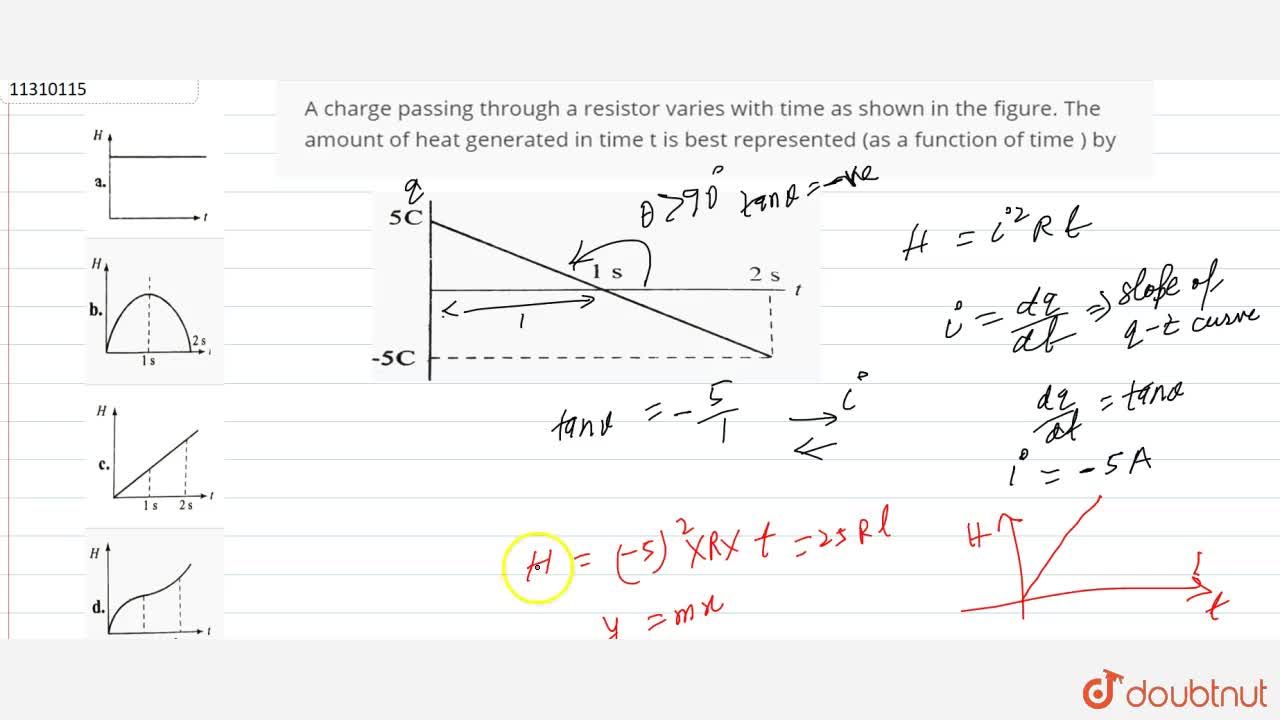 11310115
A charge passing through a resistor varies with time as shown in the figure. The
amount of heat generated in time t is best represented (as a function of time ) by
H
a.
t
H
b.
1 s
2 s
t
H
c.
1 s
2 s
t
H
d.
t
q
5C
-5C
1 s
2 s
t
1
θ>90° tanθ=-ve
H = i²Rt
i = dq/dt ⇒ slope of
q-t curve
dq/dt = tanθ
i = -5A
tanθ = -5/1
i
H = (-5)² × R × t = 25Rt
y = mx
H
t
doubtnut